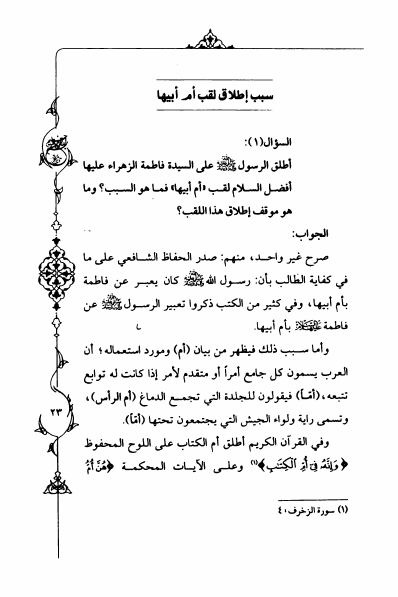 سبب إطلاق لقب أم أبيها
السؤال(١):
أطلق الرسول ﷺ على السيدة فاطمة الزهراء عليها
أفضل السلام لقب «أم أبيها» فما هو السبب؟ وما
هو موقف إطلاق هذا اللقب؟
الجواب:
صرح غير واحد، منهم: صدر الحفاظ الشافعي على ما
في كفاية الطالب بأن: رسول الله ﷺ كان يعبر عن فاطمة
بأم أبيها، وفي كثير من الكتب ذكروا تعبير الرسول ﷺ عن
فاطمة بأم أبيها.
وأما سبب ذلك فيظهر من بيان (أم) ومورد استعماله؛ أن
العرب يسمون كل جامع أمراً أو متقدم لأمر إذا كانت له توابع
تتبعه، (أمّاً) فيقولون للجلدة التي تجمع الدماغ (أم الرأس)،
وتسمى راية ولواء الجيش التي يجتمعون تحتها (أمّاً).
وفي القرآن الكريم أطلق أم الكتاب على اللوح المحفوظ
﴿وَإِنَّهُ فِي أُمِّ الْكِتَابِ﴾(١) وعلى الآيات المحكمة ﴿هُنَّ أُمُّ
(١) سورة الزخرف: ٤
٢٣